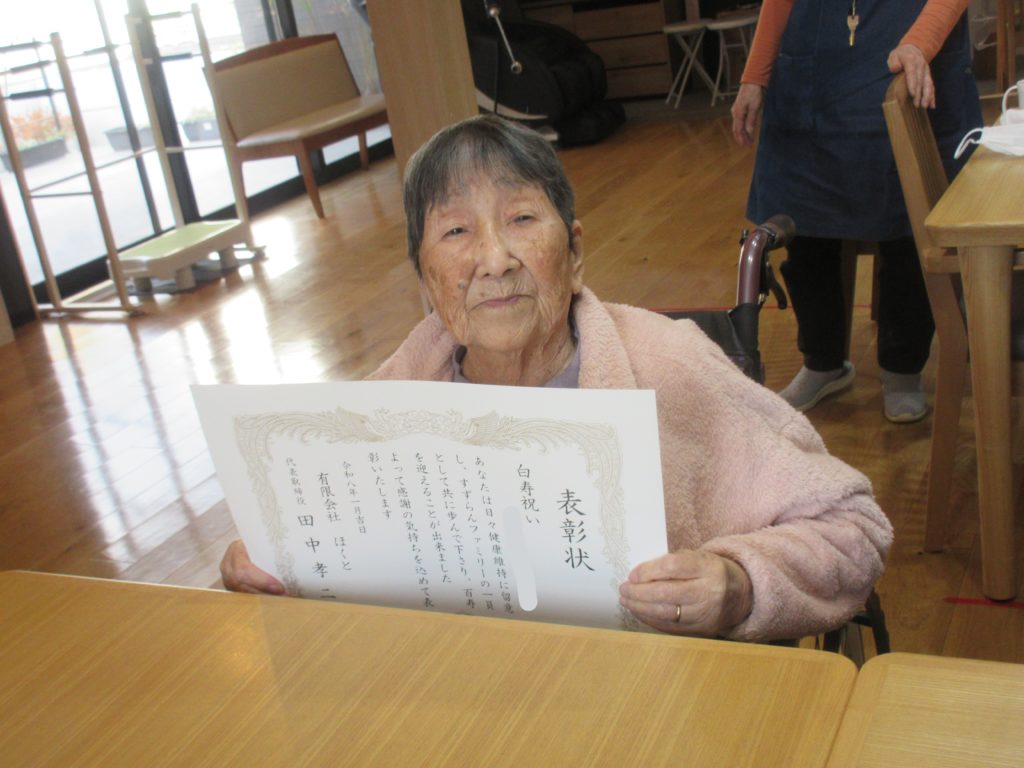 表彰状
白寿祝い
あなたは日々健康維持に留意
し、すずらんファミリーの一員
として共に歩んで下さり、百寿
を迎えることが出来ました
よって感謝の気持ちを込めて表
彰いたします
令和八年一月吉日
有限会社 ほくと
代表取締役 田中孝二